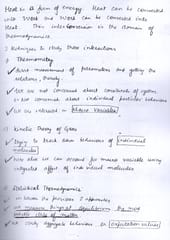 Heat is a form of energy. Heat can be converted
into Work and Work can be converted into
Heat. This interconversion is the domain of
thermodynamics.
3 techniques to study these interactions
i) Thermometry
measurement of parameters and getting the
relations, thereof.
We are not concerned about constituents of system
not concerned about individual particles behaviour
We are interested in Macro Variables
ii) Kinetic Theory of Gases
Trying to track down behaviour of individual
molecules
We also can account for macro variable using
integrated effect of individual molecules
iii) Statistical Thermodynamics
in between the previous 2 approaches
We assume thermal equilibrium, the most
state of matter
We study Aggregate behaviour or expectation values